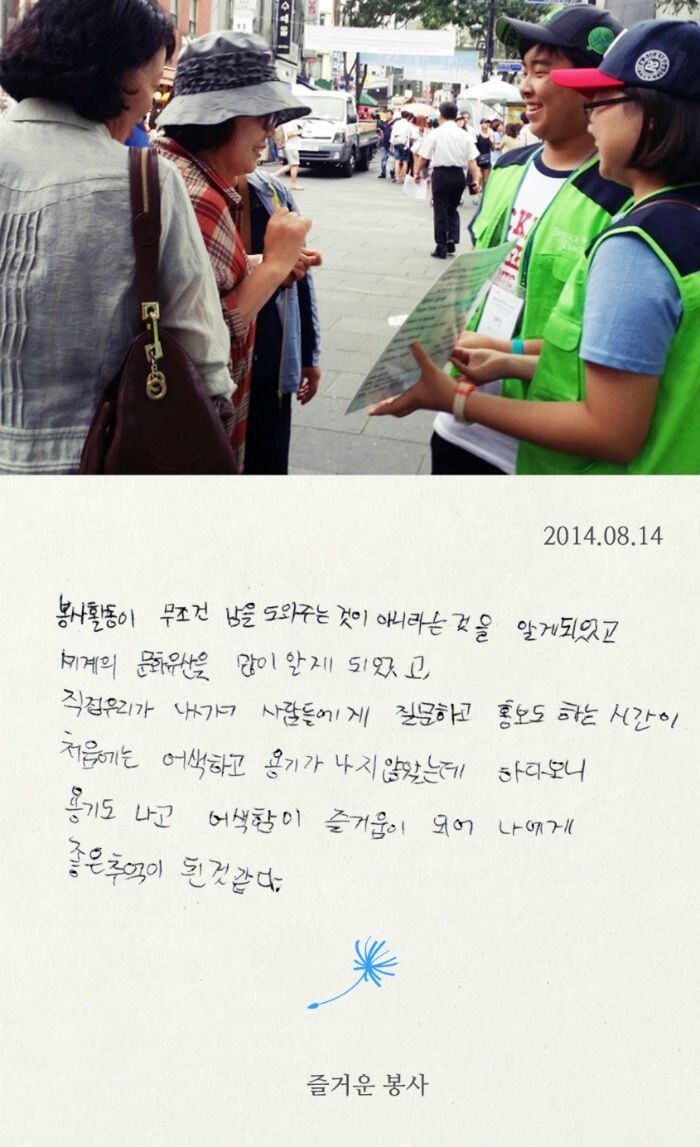 2014.08.14
봉사활동이 무조건 남을 도와주는 것이 아니라는 것을 알게되었고
세계의 문화유산을 많이 알게 되었고,
직접우리가 나가서 사람들에게 질문하고 홍보도 하는 시간이
처음에는 어색하고 용기가 나지않았는데 하다보니
용기도 나고 어색함이 즐거움이 되어 나에게
좋은추억이 된것같다.
즐거운 봉사